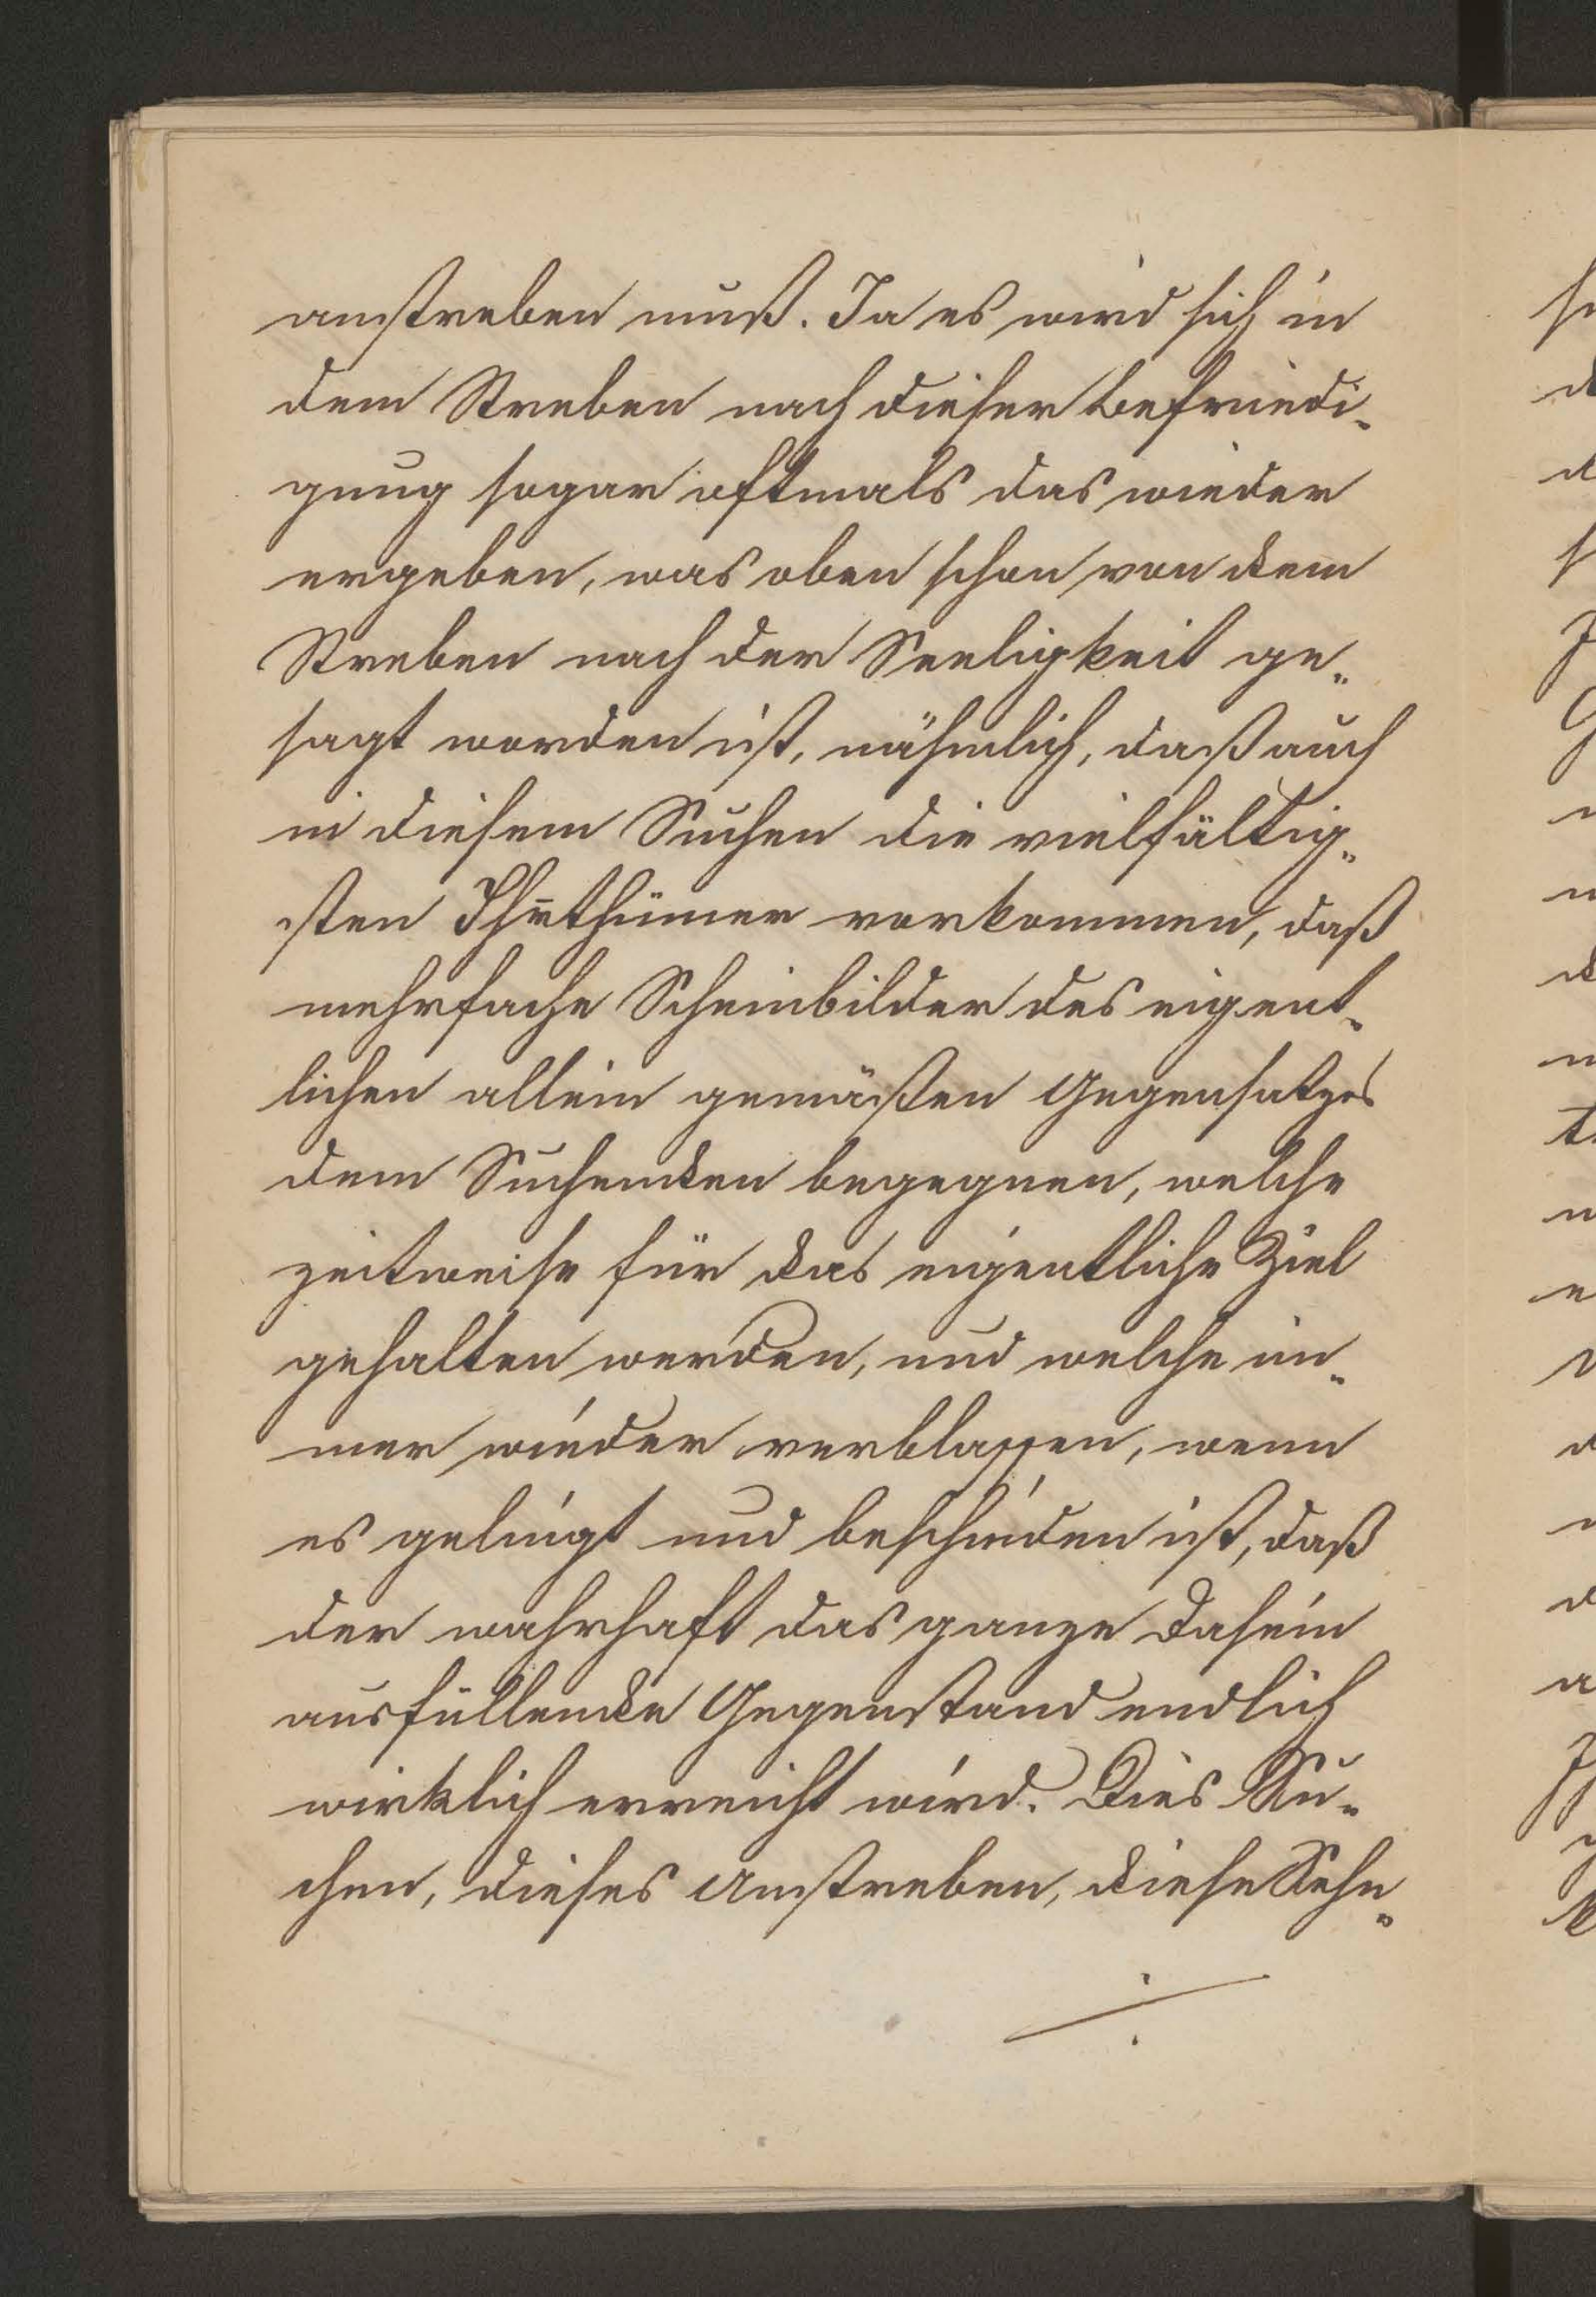 anstreben muß. Ja es wird sich in
dem Streben nach dieser Befriedi-
gung sogar oftmals das wieder
ergeben, was oben schon von dem
Streben nach der Seeligkeit ge-
sagt worden ist, nähmlich, daß auch
in diesem Suchen die vielfältig-
sten Ihrthümer vorkommen, daß
mehrfache Scheinbilder des eigent-
lichen allein gemäßen Gegensatzes
dem Suchenden begegnen, welche
zeitweise für das eigentliche Ziel
gehalten werden, und welche im-
mer wieder verblassen, wenn
es gelingt und beschieden ist, daß
der wahrhaft das ganze Dasein
ausfüllende Gegenstand endlich
wirklich erreicht wird. Dies Su-
chen, dieses Anstreben, diese Sehn-